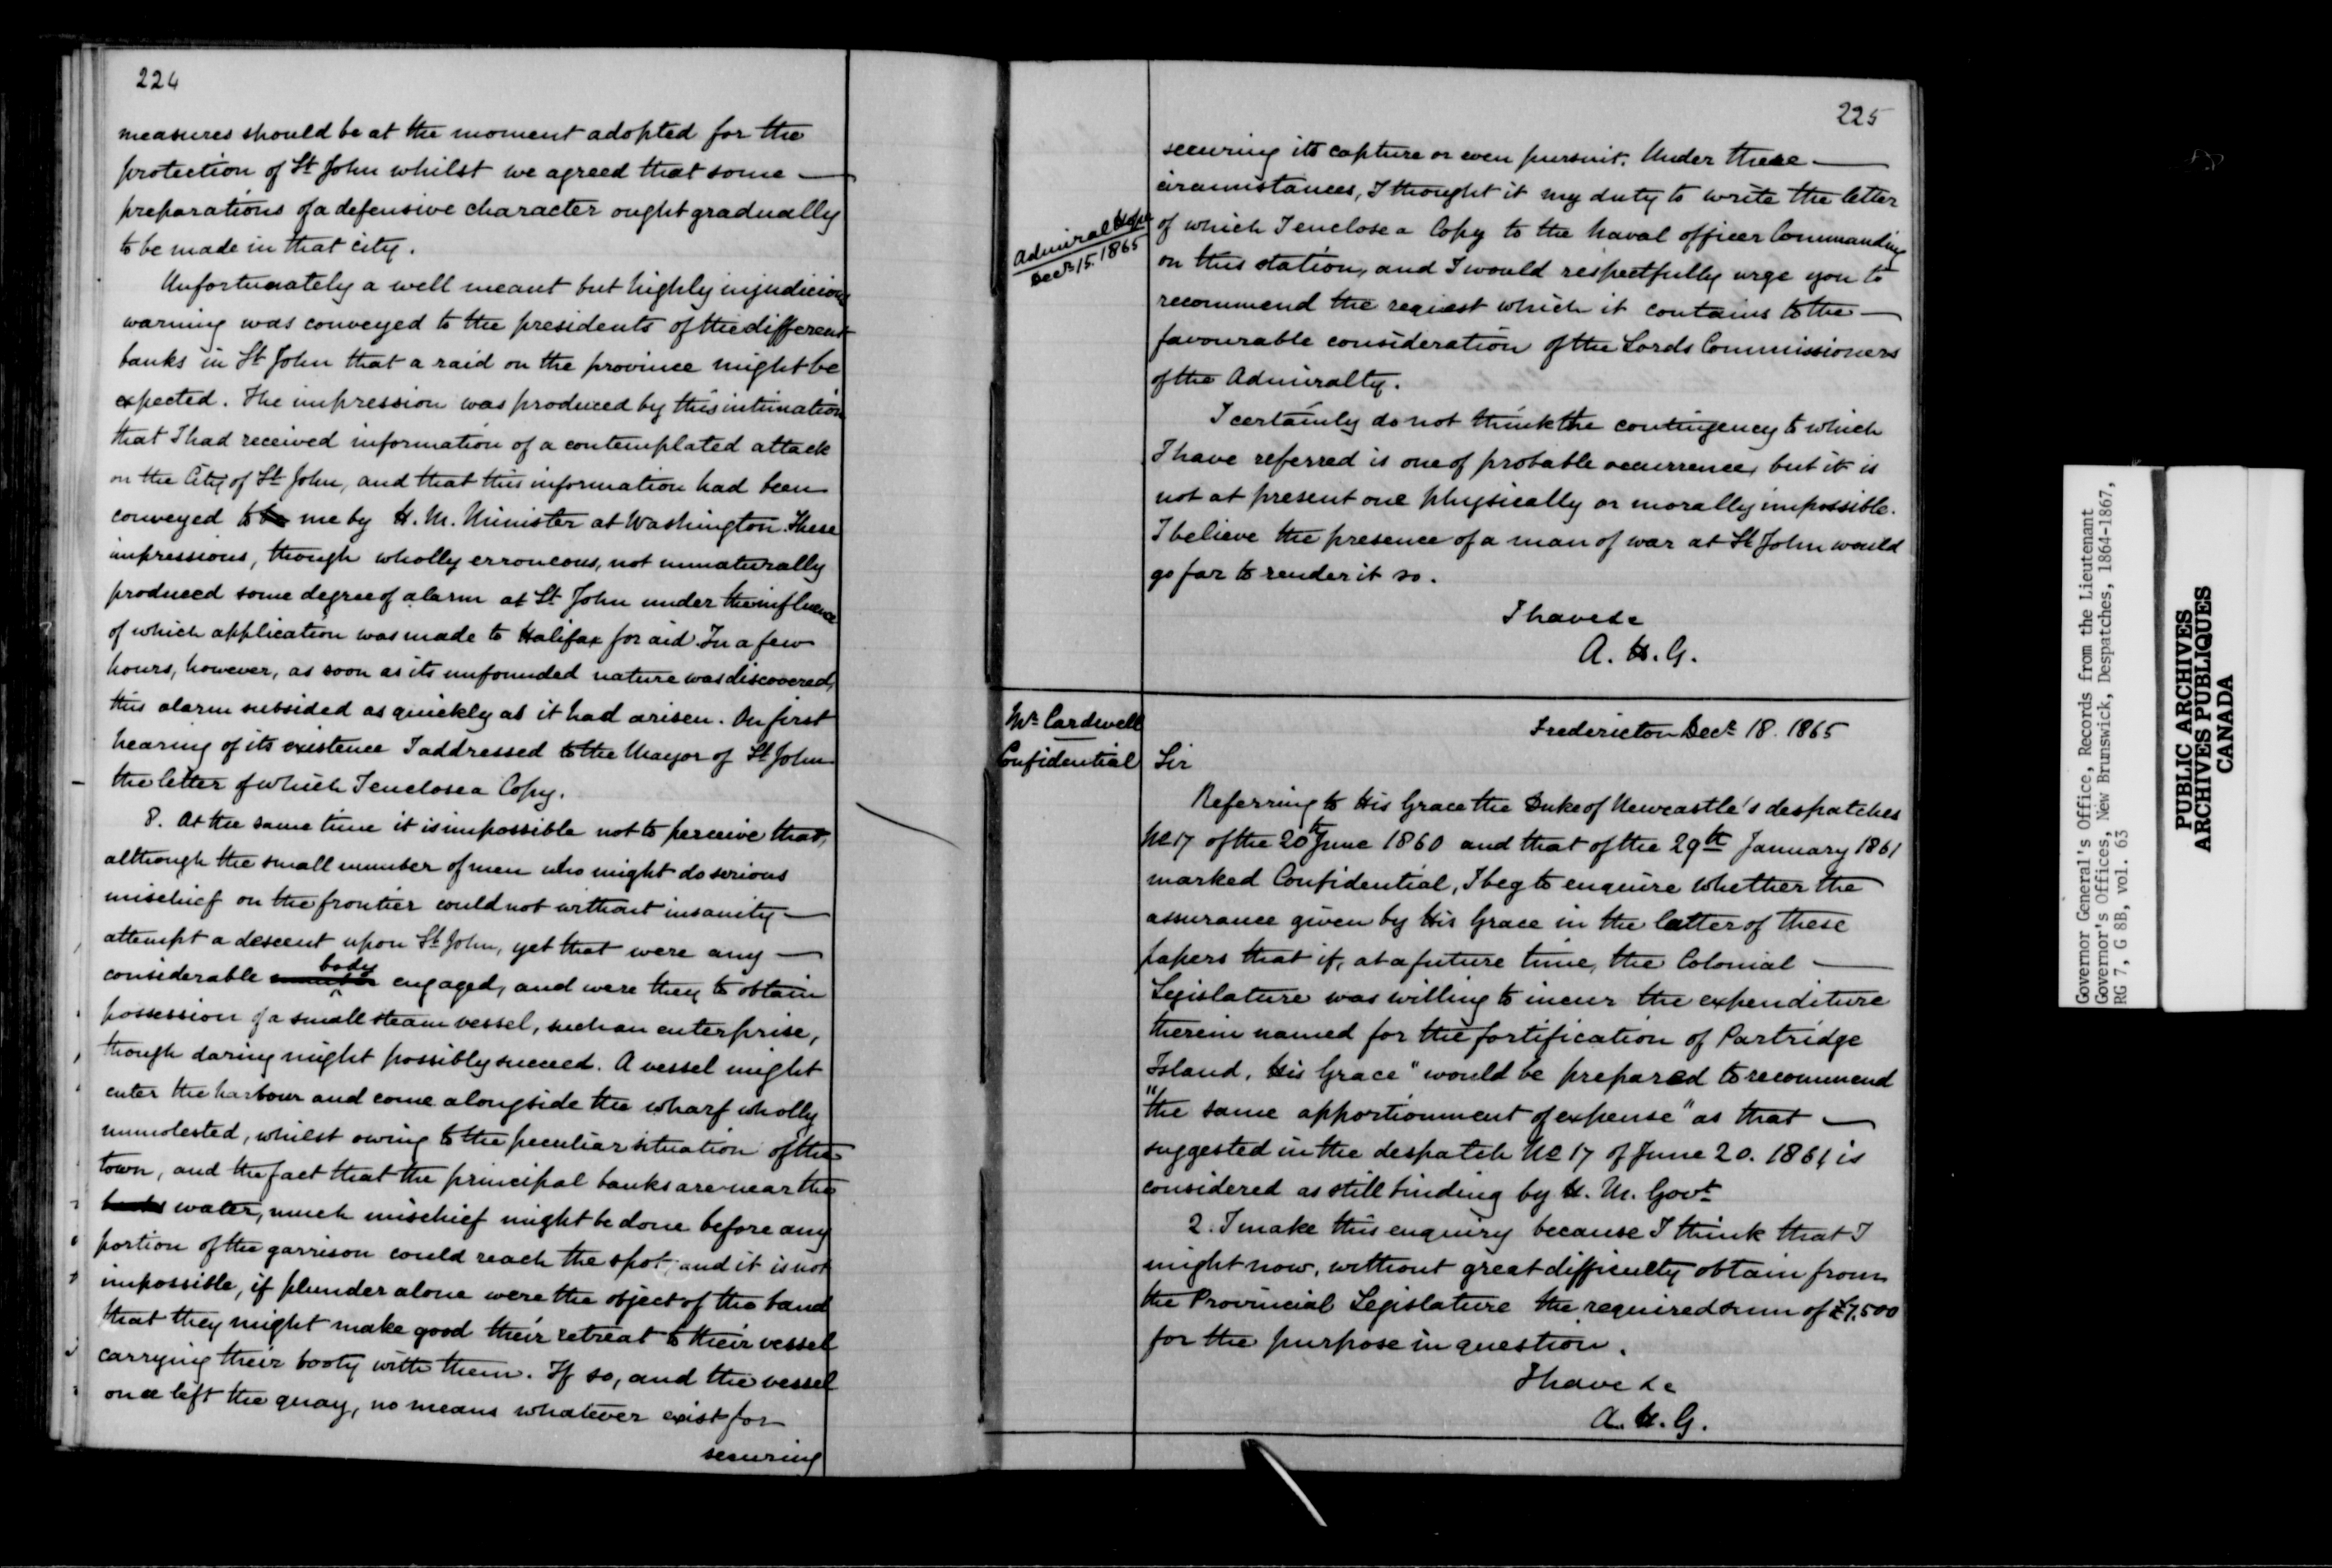 224
measures should be at the moment adopted for the
protection of St John whilst we agreed that some —
preparations of a defensive character ought gradually
to be made in that city.
Unfortunately a well meant but highly injudicious
warning was conveyed to the presidents of the different
banks in St John that a raid on the province might be
expected. The impression was produced by this intimation
that I had received information of a contemplated attack
on the City of St John, and that this information had been
conveyed to be me by H. M. Minister at Washington. These
impressions, though wholly erroneous, not unnaturally
produced some degree of alarm at St John under the influence
of which application was made to Halifax for aid. In a few
hours, however, as soon as its unfounded nature was discovered,
this alarm subsided as quickly as it had arisen. On first
hearing of its existence I addressed to the Mayor of St John
the letter of which I enclose a Copy.
8. At the same time it is impossible not to perceive that,
although the small number of men who might do serious
mischief on the frontier could not without insanity —
attempt a descent upon St John, yet that were any —
considerable number body engaged, and were they to obtain
possession of a small steam vessel, such an enterprise,
though daring might possibly succeed. A vessel might
enter the harbour and come alongside the wharf wholly
unmolested, whilst owing to the peculiar situation of the
town, and the fact that the principal banks are near the
banks water, much mischief might be done before any
portion of the garrison could reach the spot; and it is not
impossible, if plunder alone were the object of the band
that they might make good their retreat to their vessel
carrying their booty with them. If so, and the vessel
once left the quay, no means whatever exist for
securing
225
securing its capture or even pursuit. Under these —
circumstances, I thought it my duty to write the letter
Admiral Hope
Decr 15. 1865
of which I enclose a Copy to the Naval officer Commanding
on this station, and I would respectfully urge you to
recommend the request which it contains to the —
favourable consideration of the Lords Commissioners
of the Admiralty.
I certainly do not think the contingency to which
I have referred is one of probable occurrence, but it is
not at present one physically or morally impossible.
I believe the presence of a man of war at St John would
go far to render it so.
I have &c
A. H. G.
Mr Cardwell
Confidential
Fredericton Decr 18. 1865
Sir
Referring to His Grace the Duke of Newcastle's despatches
No 17 of the 20th June 1860 and that of the 29th January 1861
marked Confidential, I beg to enquire whether the
assurance given by His Grace in the latter of these
papers that if, at a future time, the Colonial —
Legislature was willing to incur the expenditure
therein named for the fortification of Partridge
Island, His Grace "would be prepared to recommend
"the same apportionment of expense" as that —
suggested in the despatch No 17 of June 20. 1861 is
considered as still binding by H. M. Govt
2. I make this enquiry because I think that I
might now, without great difficulty obtain from
the Provincial Legislature the required sum of £7,500
for the purpose in question.
I have &c
A. H. G.
Governor General's Office, Records from the Lieutenant
Governor's Offices, New Brunswick, Despatches, 1864-1867,
RG 7, G 8B, vol. 63
PUBLIC ARCHIVES
ARCHIVES PUBLIQUES
CANADA